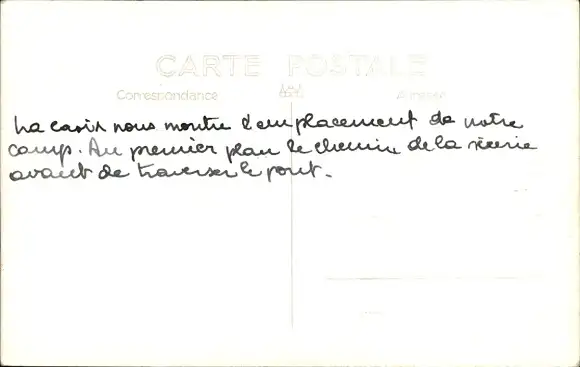 CARTE POSTALE
Correspondance Adresse
La croix nous montre l'emplacement de notre
camp. Au premier plan le chemin de la scierie
avant de traverser le pont.